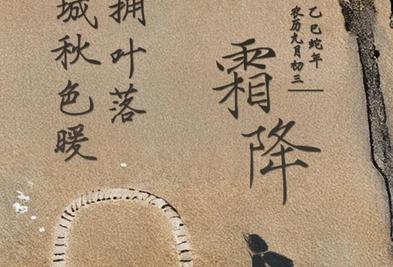 乙巳蛇年
农历九月初三
霜降
拥叶落
城秋色暖